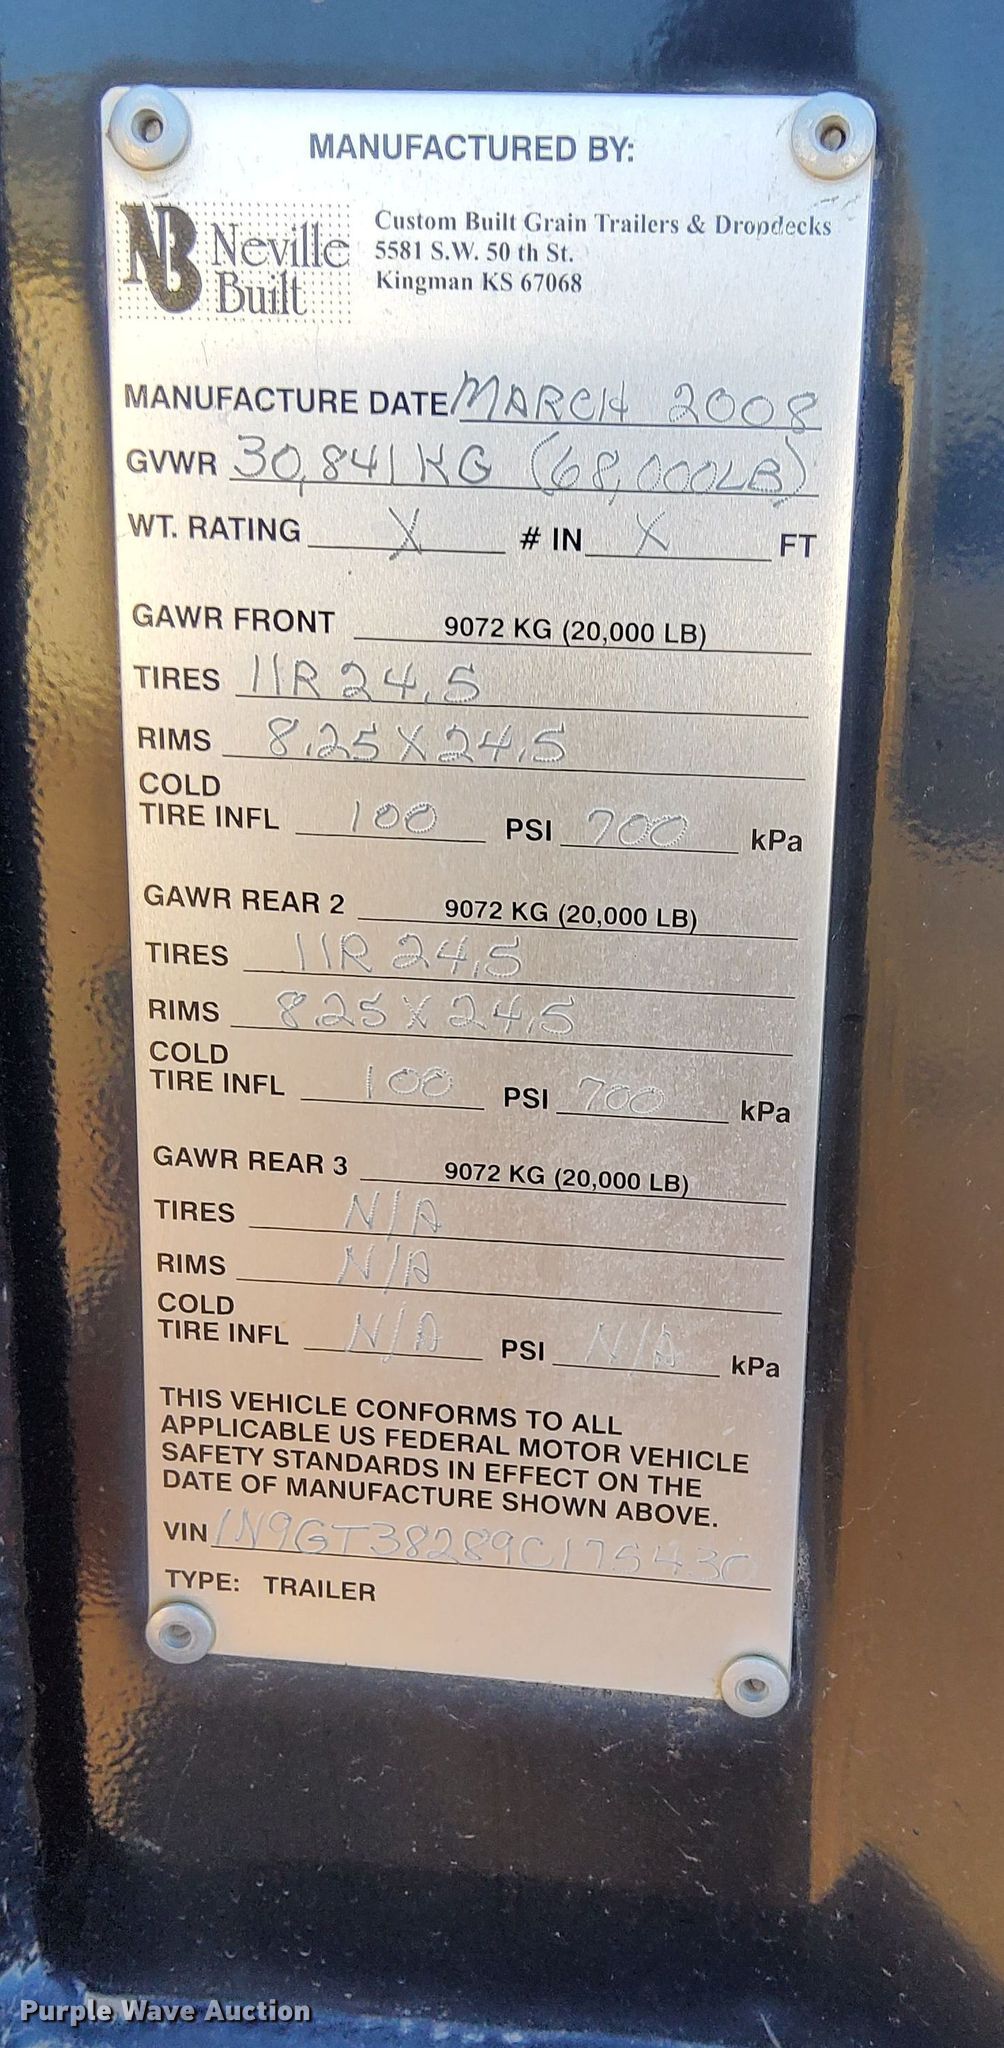 MANUFACTURED BY:
NB Neville Built
Custom Built Grain Trailers & Dropdecks
5581 S.W. 50 th St.
Kingman KS 67068
MANUFACTURE DATE MARCH 2008
GVWR 30,841 KG (68,000LB)
WT. RATING X # IN X FT
GAWR FRONT 9072 KG (20,000 LB)
TIRES 11R 24.5
RIMS 8.25 X 24.5
COLD
TIRE INFL 100 PSI 700 kPa
GAWR REAR 2 9072 KG (20,000 LB)
TIRES 11R 24.5
RIMS 8.25 X 24.5
COLD
TIRE INFL 100 PSI 700 kPa
GAWR REAR 3 9072 KG (20,000 LB)
TIRES N/A
RIMS N/A
COLD
TIRE INFL N/A PSI N/A kPa
THIS VEHICLE CONFORMS TO ALL
APPLICABLE US FEDERAL MOTOR VEHICLE
SAFETY STANDARDS IN EFFECT ON THE
DATE OF MANUFACTURE SHOWN ABOVE.
VIN 1N9GT38289C175430
TYPE: TRAILER
Purple Wave Auction